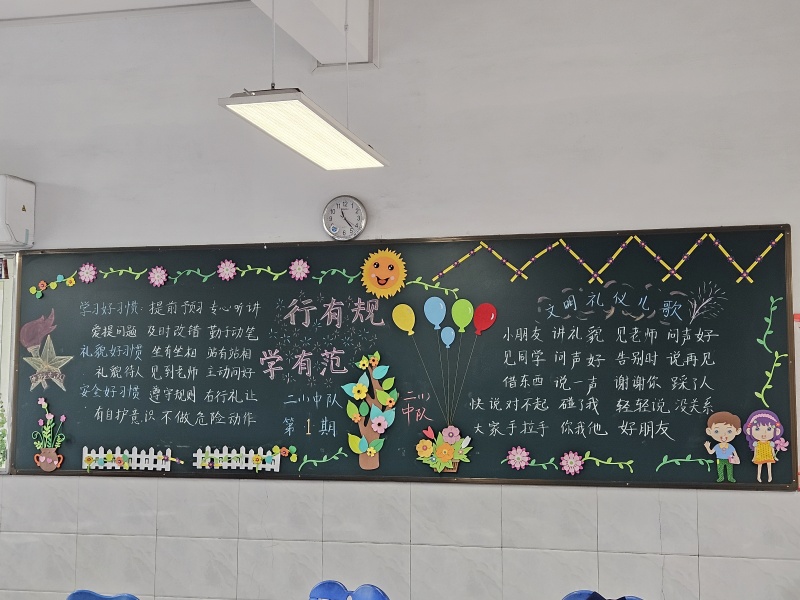 学习好习惯：提前预习 专心听讲
爱提问题 及时改错 勤于动笔
礼貌好习惯 坐有坐相 站有站相
礼貌待人 见到老师 主动问好
安全好习惯 遵守规则 右行礼让
有自护意识 不做危险动作
行有规
学有范
二(1)中队
第1期
二(1)
中队
文明礼仪儿歌
小朋友 讲礼貌 见老师 问声好
见同学 问声好 告别时 说再见
借东西 说一声 谢谢你 踩了人
快说对不起 碰了我 轻轻说 没关系
大家手拉手 你我他 好朋友